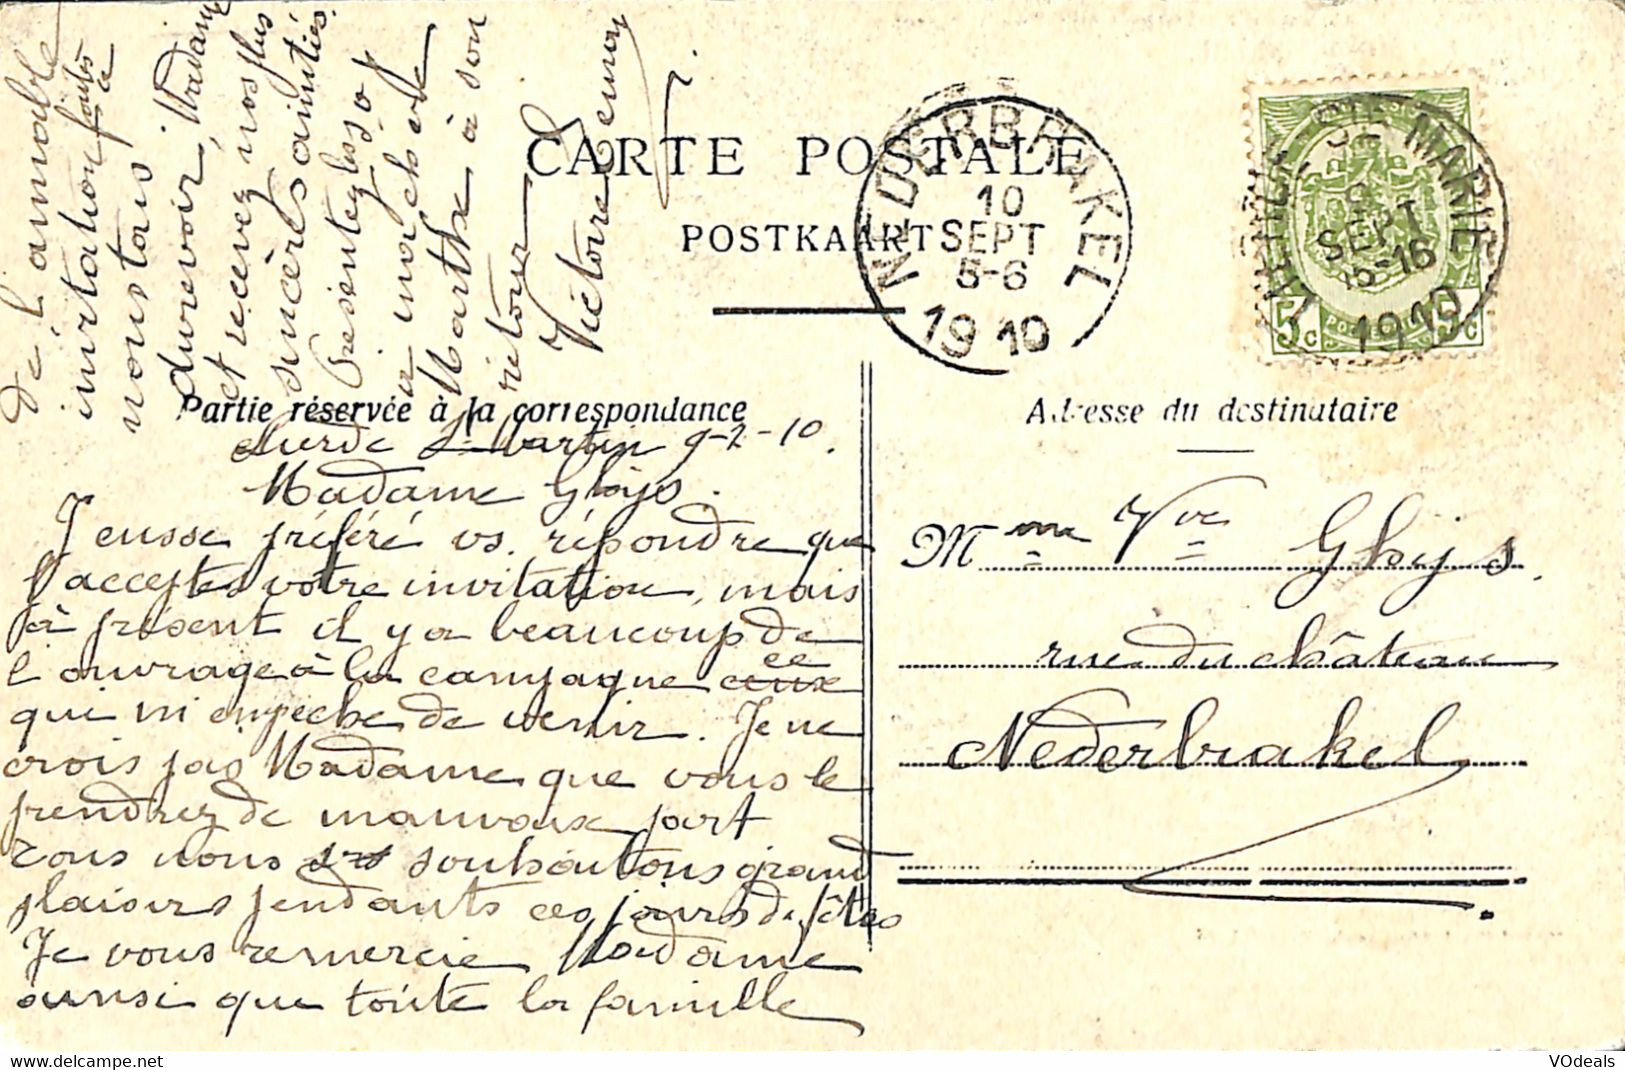 CARTE POSTALE
POSTKAART
NEDERBRAKEL
10
SEPT
5-6
1910
STE MARIE
9
SEPT
15-16
1910
5c
5c
Partie réservée à la correspondance
Adresse du destinataire
Lierde St Martin 9-2-10.
Madame Ghijs.
J'eusse préféré vs. répondre que
j'acceptes votre invitation, mais
à présent il y a beaucoup de
l'ouvrage à la campagne ce
qui m'empeche de venir. Je ne
crois pas Madame que vous le
prendrez de mauvaise part
Tous nous souhaitons grand
plaisirs pendants ces jours de fêtes
Je vous remercie Madame
ainsi que toute la famille
de l'aimable
invitation faites
à nous tous
Au revoir, Madame
et recevez nos plus
sincères amitiés.
Presentez lesso
à mon
Marthe à son
retour
Victoire
Mme Vve Ghijs.
rue du château
Nederbrakel
VOdeals
www.delcampe.net